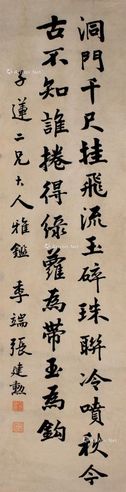 洞門千尺挂飛流玉碎珠聯冷噴秋今
古不知誰捲得綠蘿為帶玉為鈎
子蓮二兄大人雅鑑 李端張建勳